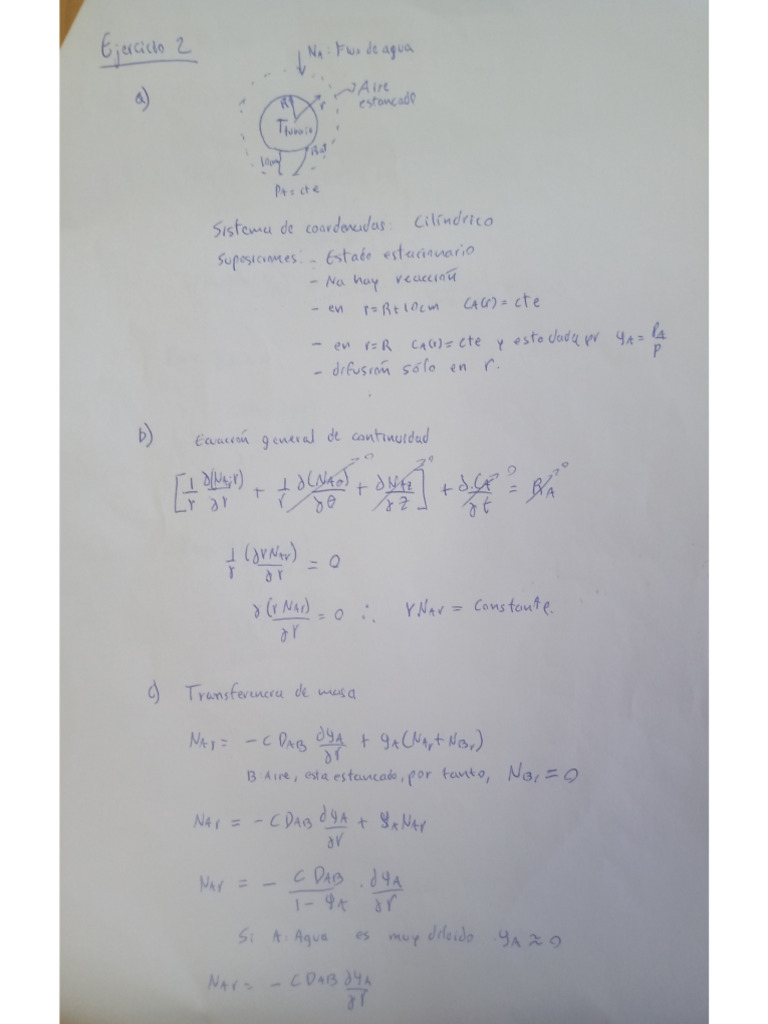 Ejercicio 2
a)
NA: Flux de agua
Aire
estancado
R
r
T
10cm
PA = cte
Sistema de coordenadas: Cilíndrico
Suposiciones: - Estado estacionario
- No hay reacción
- en r=R+10cm CA(r) = cte
- en r=R CA(r)=cte y esta dada por yA = PA/P
- difusión sólo en r.
b) Ecuación general de continuidad
[1/r ∂(NAr r)/∂r + 1/r ∂(NAθ)/∂θ→0 + ∂NAz/∂z→0] + ∂CA/∂t→0 = RA→0
1/r (∂rNAr)/∂r = 0
∂(r NAr)/∂r = 0 ∴ rNAr = constante.
c) Transferencia de masa
NAr = -C DAB ∂yA/∂r + yA(NAr + NBr)
B: Aire, esta estancado, por tanto, NBr = 0
NAr = -C DAB ∂yA/∂r + yA NAr
NAr = - C DAB/1-yA · ∂yA/∂r
Si A: Agua es muy diluido yA ≈ 0
NAr = - C DAB ∂yA/∂r